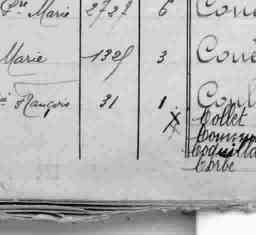 Pre Marie 2727 6 Cou
Marie 1325 3 Cou
François 31 1 Cou
x Collet
Commu
Coquilla
Corbe